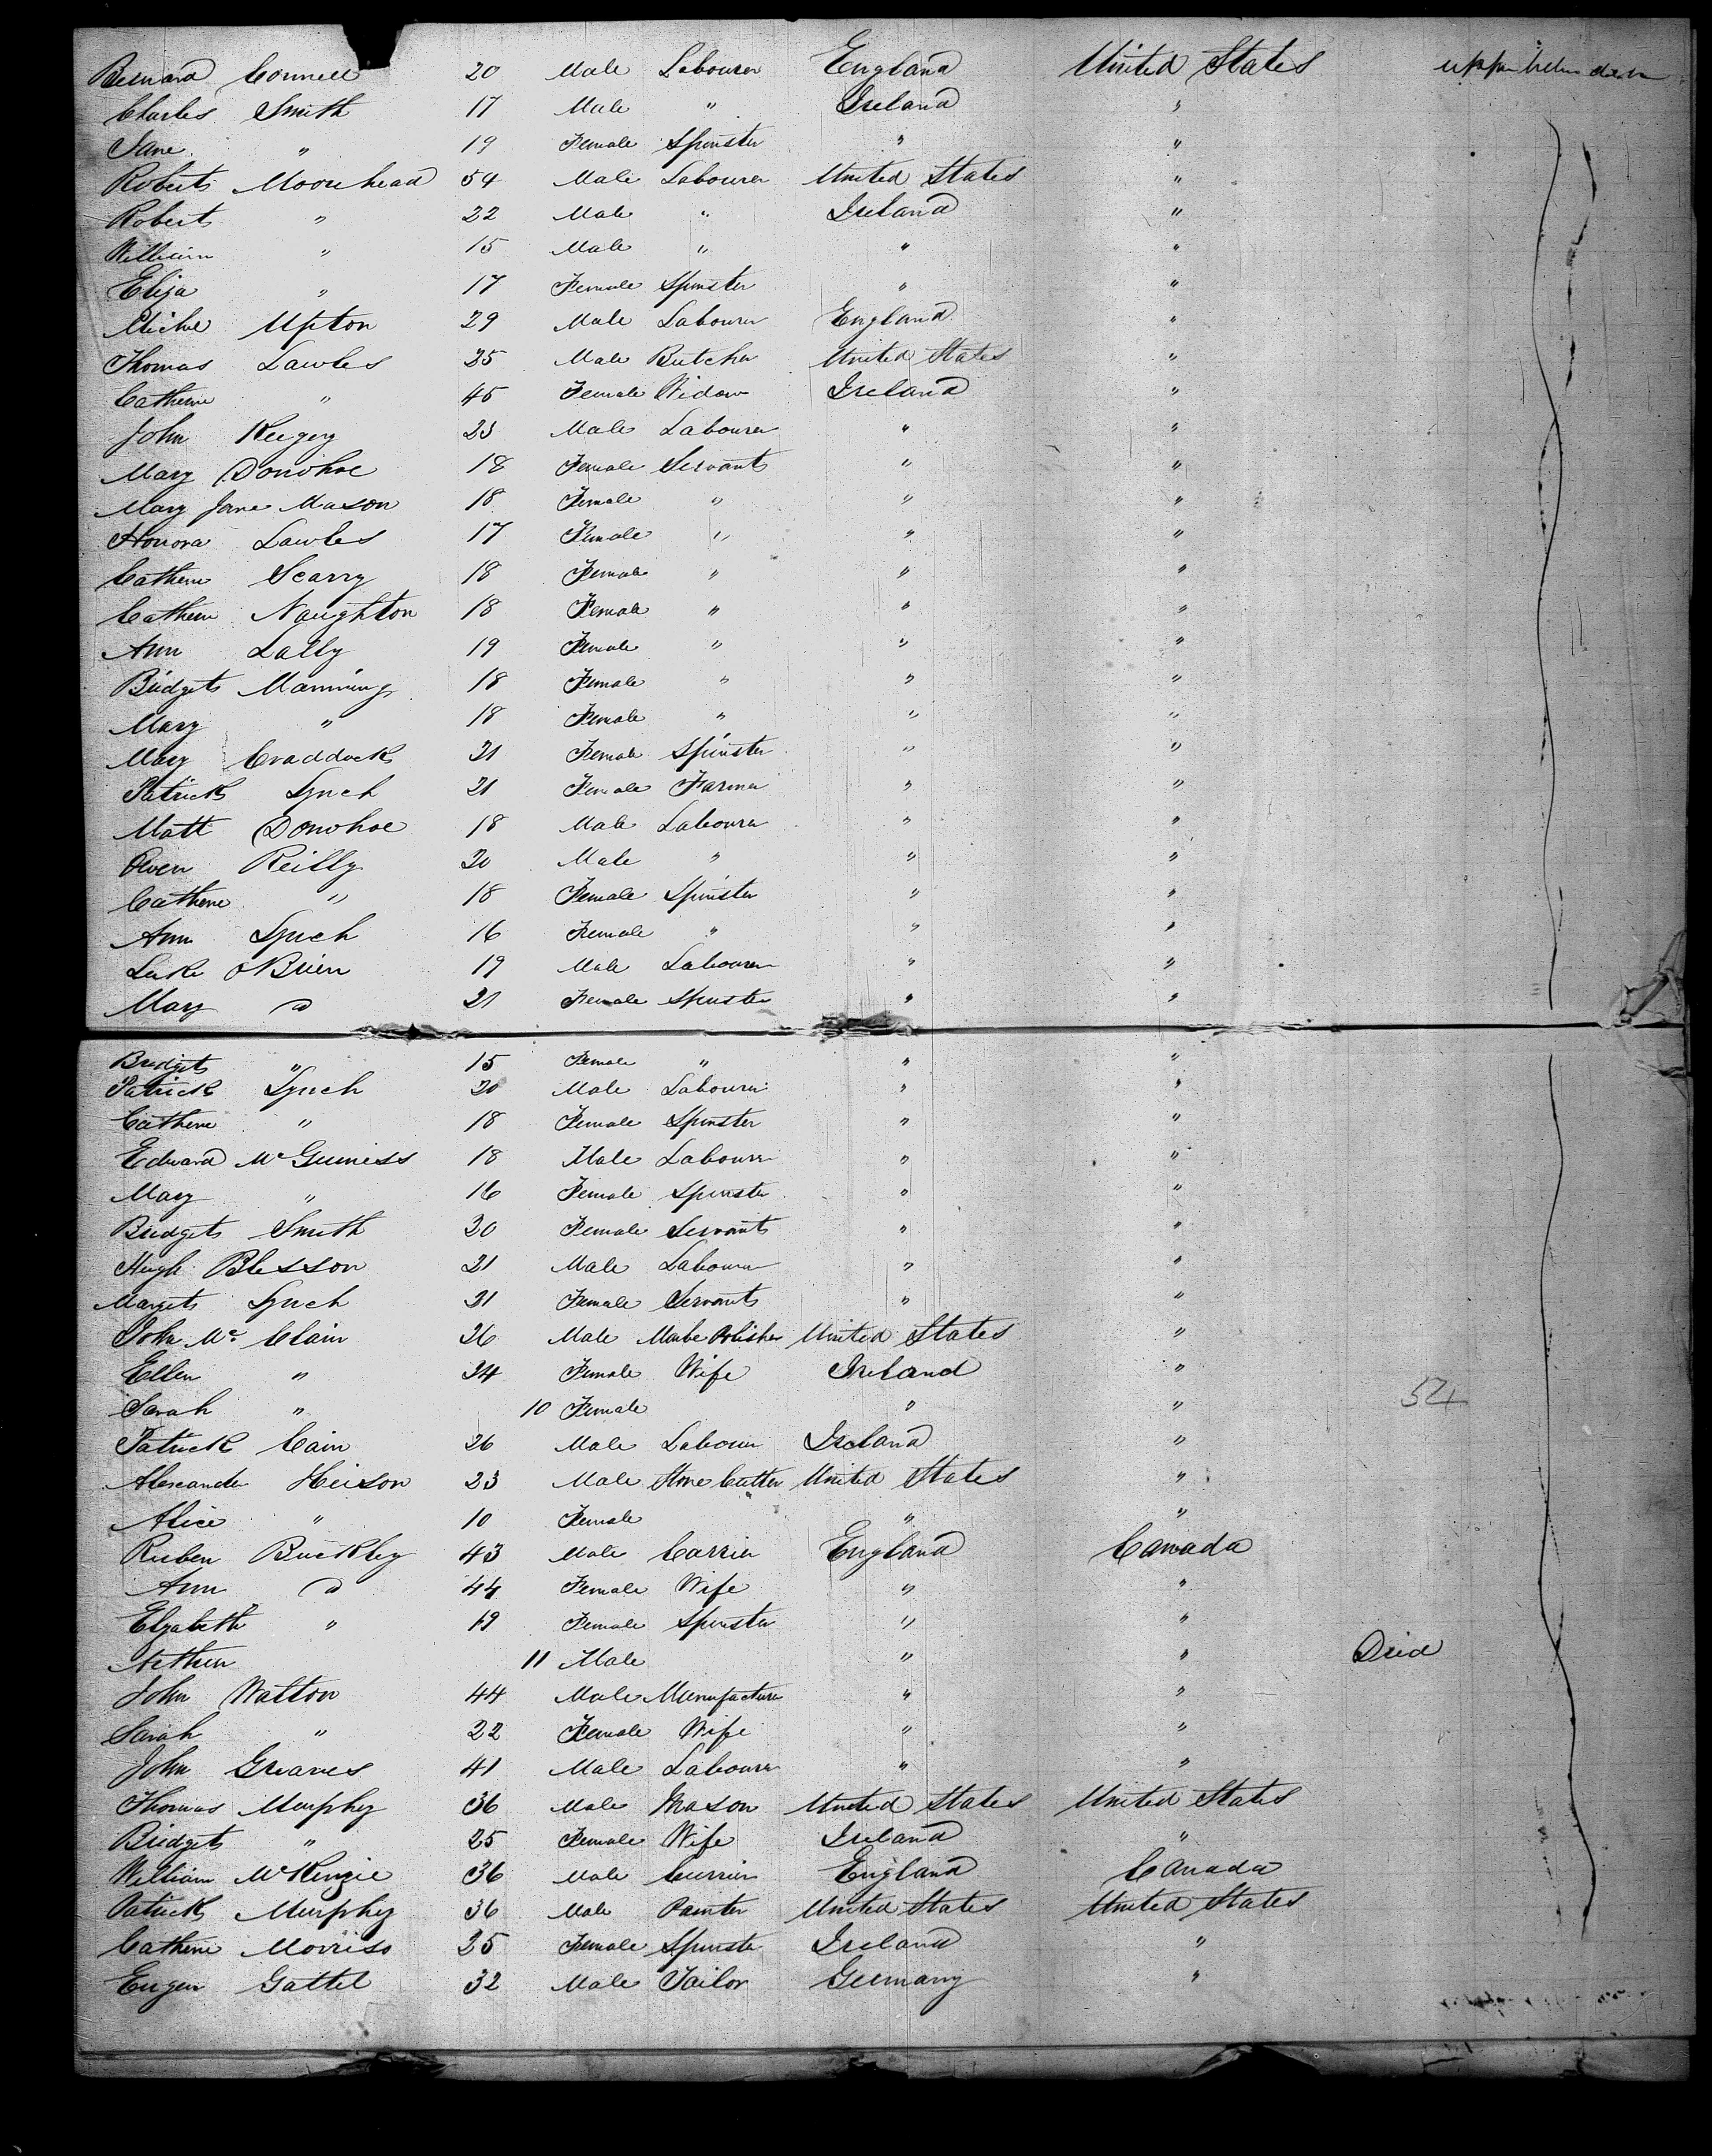 Bernard Connell 20 Male Labourer England United States upper between decks
Charles Smith 17 Male " Ireland "
Jane " 19 Female Spinster " "
Robert Moorehead 54 Male Labourer United States "
Robert " 22 Male " Ireland "
William " 15 Male " " "
Eliza " 17 Female Spinster " "
Upton 29 Male Labourer England "
Thomas Lawles 25 Male Butcher United States "
Catherine " 45 Female Widow Ireland "
John Keegey 23 Male Labourer " "
Mary Donohoe 18 Female Servant " "
Mary Jane Mason 18 Female " " "
Honora Lawles 17 Female " " "
Catherine Scarry 18 Female " " "
Cathern Naughton 18 Female " " "
Ann Lally 19 Female " " "
Bridget Manning 18 Female " " "
Mary " 18 Female " " "
Mary Craddock 21 Female Spinster " "
Patrick Lynch 21 Female Farmer " "
Matt Donohoe 18 Male Labourer " "
Owen Reilly 20 Male " " "
Catherine " 18 Female Spinster " "
Ann Lynch 16 Female " " "
Luke OBrien 19 Male Labourer " "
Mary do 21 Female Spinster " "
Bridget " 15 Female " " "
Patrick Lynch 20 Male Labourer " "
Catherine " 18 Female Spinster " "
Edward McGuiness 18 Male Labourer " "
Mary " 16 Female Spinster " "
Bridget Smith 20 Female Servant " "
Hugh Blesson 21 Male Labourer " "
Margret Lynch 21 Female Servant " "
John Mc Clain 26 Male Marble Polisher United States "
Ellen " 24 Female Wife Ireland "
Sarah " 10 Female " " 54
Patrick Cain 26 Male Labourer Ireland "
Alexander Heison 23 Male Stone Cutter United States "
Alice " 10 Female " "
Ruben Buckley 43 Male Carrier England Canada
Ann do 44 Female Wife " "
Elizabeth " 19 Female Spinster " "
Arthur 11 Male " " Died
John Watton 44 Male Manufacturer " "
Sarah " 22 Female Wife " "
John Greaves 41 Male Labourer " "
Thomas Murphy 36 Male Mason United States United States
Bridget " 25 Female Wife Ireland "
William McKenzie 36 Male Currier England Canada
Patrick Murphy 36 Male Painter United States United States
Catherine Morriso 25 Female Spinster Ireland "
Eugen Gattel 32 Male Tailor Germany "